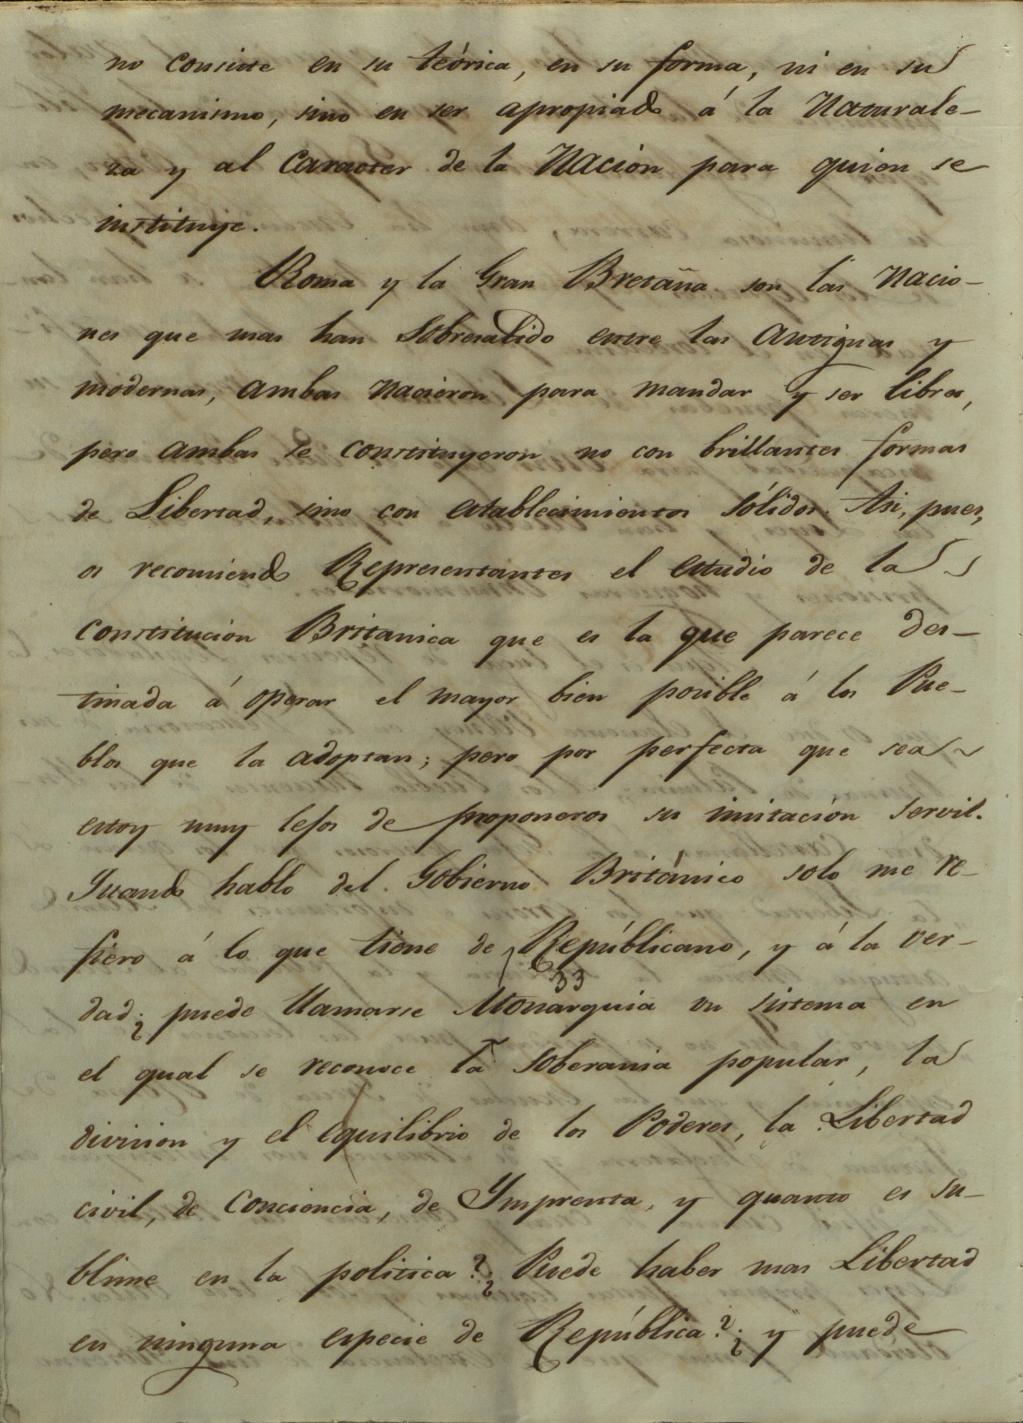 no consiste en su teórica, en su forma, ni en su
mecanismo, sino en ser apropiado á la Naturale-
za y al Caracter de la Nación para quien se
instituye.
Roma y la Gran Bretaña son las Nacio-
nes que mas han Sobresalido entre las Antiguas y
modernas, Ambas Nacieron para mandar y ser libres,
pero Ambas se constituyeron no con brillantes formas
de Libertad, sino con establecimientos sólidos. Asi, pues,
os recomiendo Representantes el estudio de la
Constitución Britanica que es la que parece des-
tinada á operar el mayor bien posible á los Pue-
blos que la adoptan; pero por perfecta que sea
estoy muy lejos de proponeros su imitación servil.
Quando hablo del Gobierno Británico solo me re-
fiero á lo que tiene de Repúblicano, y á la ver-
33
dad ¿puede llamarse Monarquia un sistema en
el qual se reconoce la soberania popular, la
division y el equilibrio de los Poderes, la Libertad
civil, de Conciencia, de Ymprenta, y quanto es su-
blime en la politica? ¿Puede haber mas Libertad
en ninguna especie de República? ¿y puede